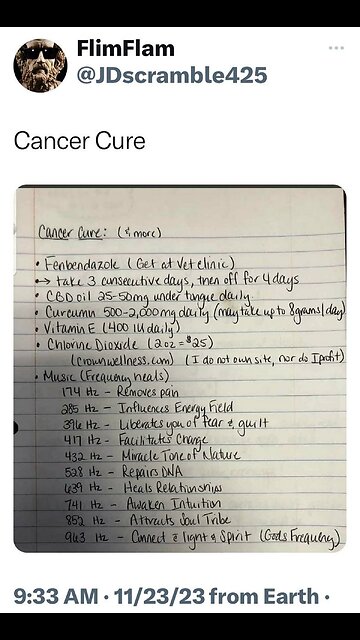 FlimFlam
@JDscramble425
Cancer Cure
Cancer Cure: (& more)
• Fenbendazole (Get at Vet clinic)
• → take 3 consecutive days, then off for 4 days
• CBD oil 25-50mg under tongue daily.
• Curcumin 500-2,000mg daily (may take up to 8grams/day)
• Vitamin E (400 IU daily)
• Chlorine Dioxide (2oz = $25)
(crownwellness.com) (I do not own site, nor do I profit)
• Music (Frequency heals)
174 Hz - Removes pain
285 Hz - Influences Energy Field
396 Hz - Liberates you of fear & guilt
417 Hz - Facilitates Change
432 Hz - Miracle Tone of Nature
528 Hz - Repairs DNA
639 Hz - Heals Relationships
741 Hz - Awaken Intuition
852 Hz - Attracts Soul Tribe
963 Hz - Connect c̄ light & Spirit (Gods Frequency)
9:33 AM · 11/23/23 from Earth ·